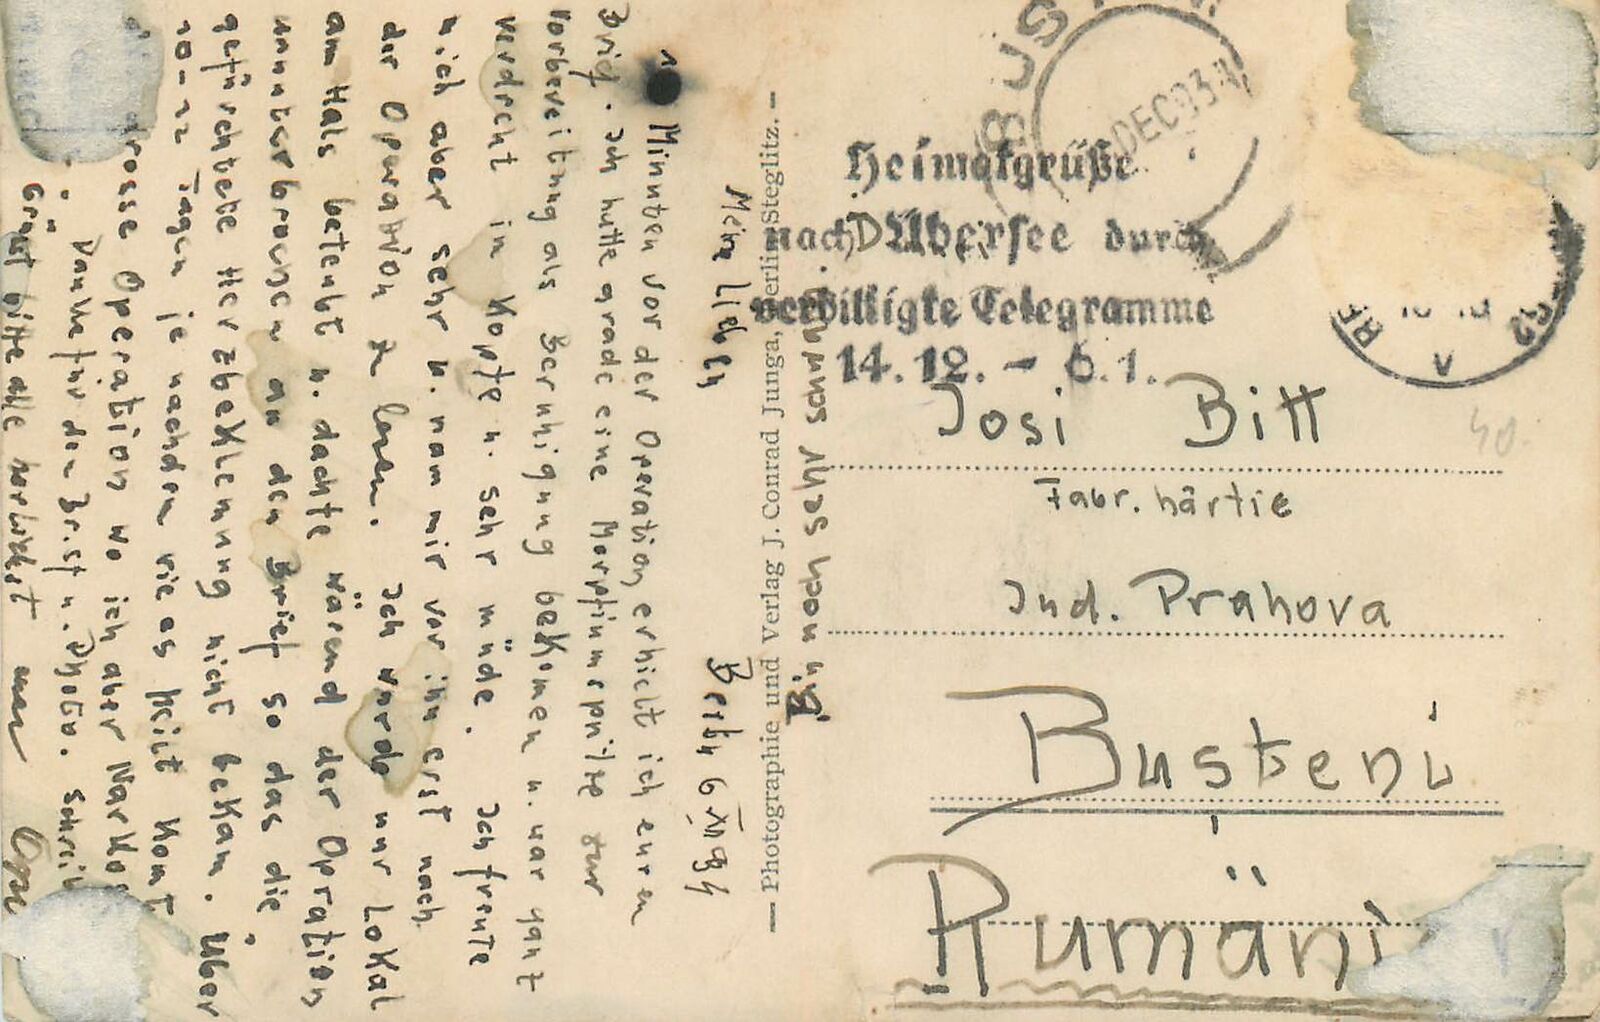 Meine Lieben
Berlin 6 XII 34
n Minuten vor der Operation erhielt ich euren
Brief. Ich hatte grade eine Morfiumspritze zur
vorbereitung als Beruhigung bekomen u. war ganz
verdreht im Kopfe u. sehr müde. Ich freute
mich aber sehr u. nam mir vor ihn erst nach
der Operation zu lesen. Ich wurde nur Lokal
am Hals beteubt u. dachte wärend der Opration
ununterbrochen an den Brief so das die
gefürchtete Herzbeklemung nicht bekam. Über
10-12 Tagen je nachdem wie es heilt komt
grosse Operation wo ich aber Narkose
Danke für den Brief u. Photo. Schreib
Grüst bitte alle herlichst
Bin noch sehr schwach
— Photographie und Verlag J. Conrad Junga, Berlin-Steglitz. —
BUSTENI
DEC 934
Heimatgrüße
nach Übersee durch
verbilligte Telegramme
14.12. – 6.1.
Josi Bitt
40.
Fabr. hârtie
Jud. Prahova
Busteni
Rumänien